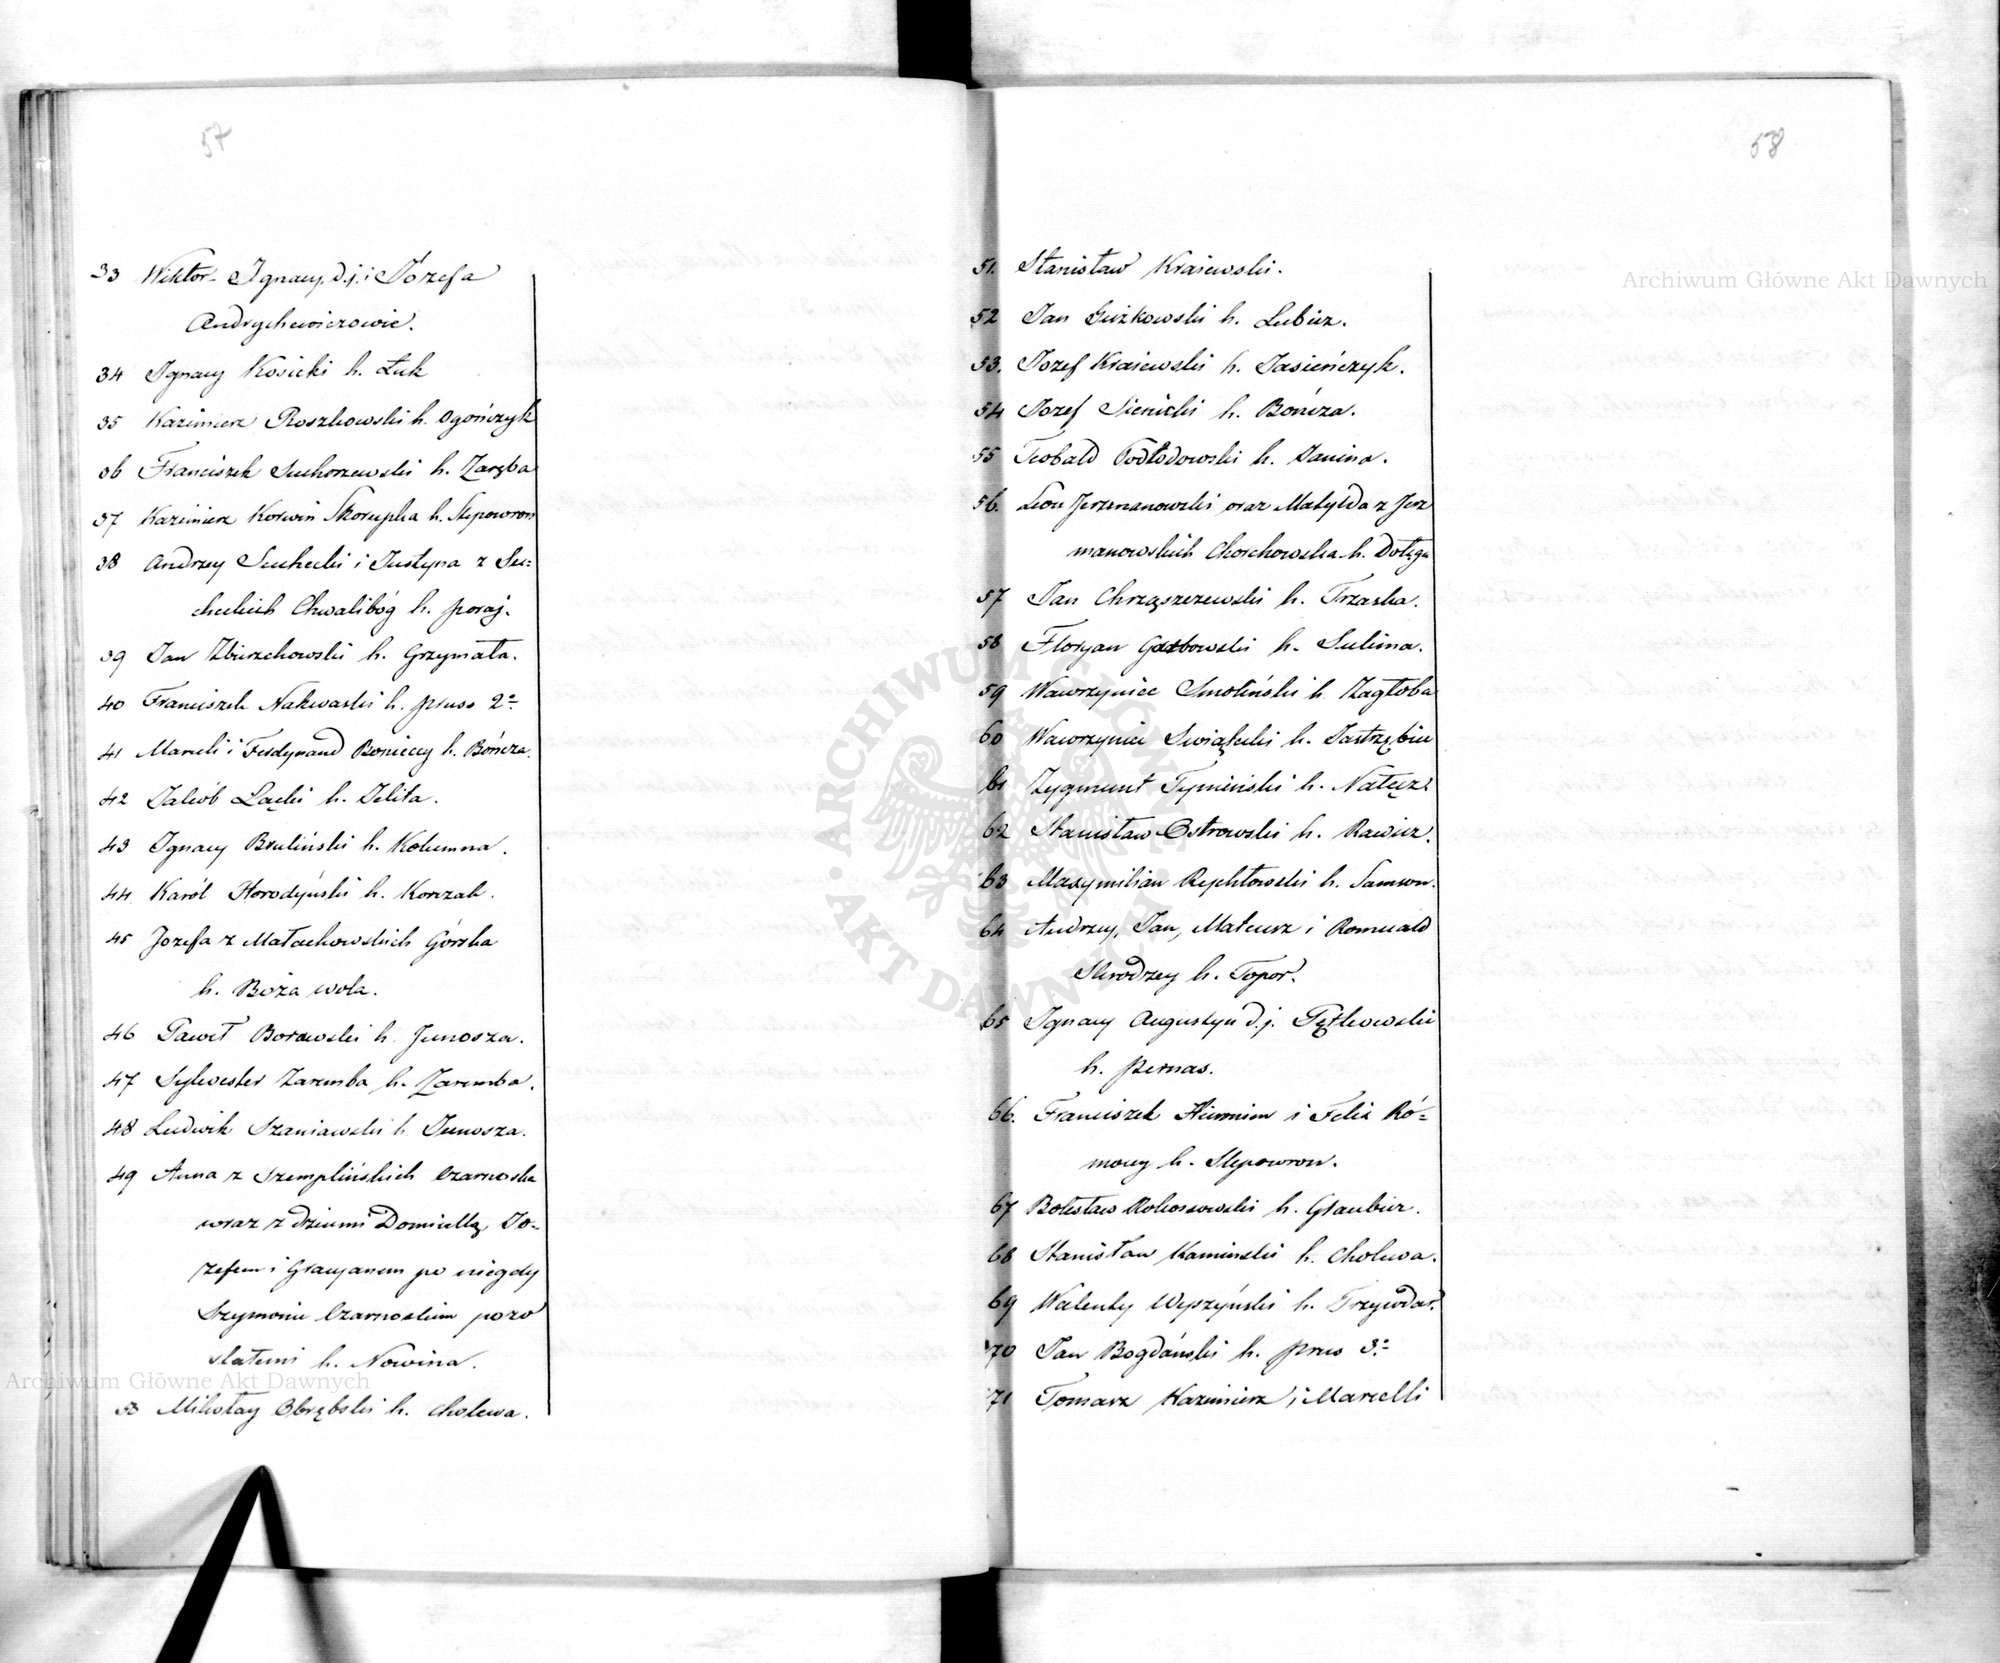 57
33 Wiktor Ignacy d.j. i Józefa
Andrychewiczowie.
34 Ignacy Kosicki h. Łuk
35 Kazimierz Roszkowski h. Ogończyk
36 Franciszek Suchorzewski h. Zaręba
37 Kazimierz Korwin Skorupka h. Slepowron
38 Andrzey Suchecki i Justyna z Su=
checkich Chwalibóg h. poraj.
39 Jan Zbierzchowski h. Grzymała.
40 Franciszek Nakwaski h. pruss 2º
41 Marceli i Ferdynand Bonieccy h. Bończa.
42 Jakób Łącki h. Jelita.
43 Ignacy Bruliński h. Kolumna.
44 Karól Horodyński h. Korczak.
45 Jozefa z Małachowskich Górska
h. Boża wola.
46 Paweł Borawski h. Junosza.
47 Sylwester Zaremba h. Zaremba.
48 Ludwik Szaniawski h. Junosza.
49 Anna z Szemplińskich Czarnoska
wraz z dziećmi Domicellą, Jo-
zefem i Gracyanem po niegdy
Szymonie Czarnoskim pozo
stałemi h. Nowina.
50 Mikołay Obrębski h. cholewa.
58
51. Stanisław Kraiewski.
52 Jan Guzkowski h. Lubicz.
53. Jozef Kraiewski h. Jasieńczyk.
54 Jozef Sienicki h. Bończa.
55 Teobald Podłodowski h. Janina.
56. Leon Jerzmanowski oraz Matylda z Jerz
manowskich Choschowska h. Dołęga
57 Jan Chrząszczewski h. Trzaska.
58 Floryan h. Sulima.
59 Wawrzyniec Smoliński h Zagłoba
60 Wawrzyniec Swiątecki h. Jastrzębiec
61 Zygmunt Tymiński h. Nałęcz
62 Stanisław Ostrowski h. Rawicz.
63 Maxymilian Rychłowski h. Samson.
64 Andrzey, Jan, Mateusz i Romuald
Skrodzcy h. Topor.
65 Ignacy Augustyn d.j. Pętkowski
h. pernas.
66. Franciszek Hieronim i Felix Ró=
moccy h. Slepowron.
67 Bolesław Rokossowski h. Glaubicz.
68 Stanisław Kaminski h. cholewa.
69 Walenty Wyszyński h. Trzywdar.
70 Jan Bogdański h. prus 3º
71 Tomasz Kazimierz i Marcelli
Archiwum Główne Akt Dawnych
Archiwum Główne Akt Dawnych
ARCHIWUM GŁÓWNE AKT DAWNYCH